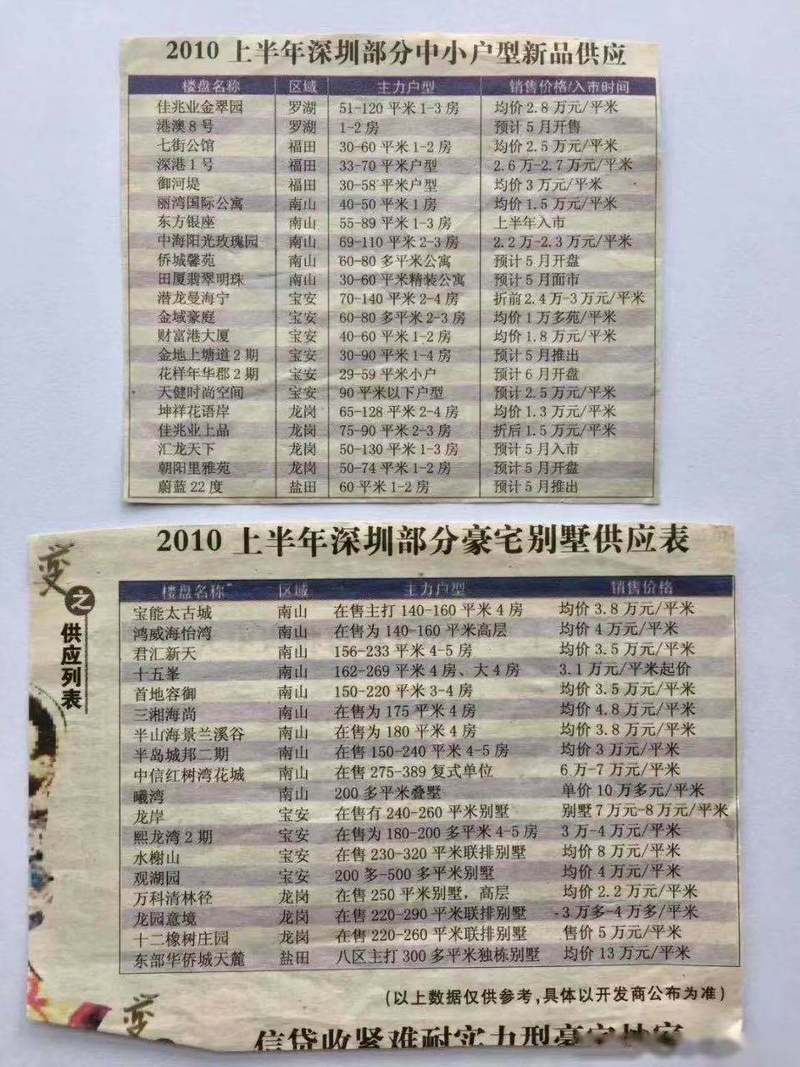 2010 上半年深圳部分中小户型新品供应
楼盘名称 区域 主力户型 销售价格/入市时间
佳兆业金翠园 罗湖 51-120 平米 1-3 房 均价 2.8 万元/平米
港澳 8 号 罗湖 1-2 房 预计 5 月开售
七街公馆 福田 30-60 平米 1-2 房 均价 2.5 万元/平米
深港 1 号 福田 33-70 平米户型 2.6 万-2.7 万元/平米
御河堤 福田 30-58 平米户型 均价 3 万元/平米
丽湾国际公寓 南山 40-50 平米 1 房 均价 1.5 万元/平米
东方银座 南山 55-89 平米 1-3 房 上半年入市
中海阳光玫瑰园 南山 69-110 平米 2-3 房 2.2 万-2.3 万元/平米
侨城馨苑 南山 60-80 多平米公寓 预计 5 月开盘
田厦翡翠明珠 南山 30-60 平米精装公寓 预计 5 月面市
潜龙曼海宁 宝安 70-140 平米 2-4 房 折前 2.4 万-3 万元/平米
金域豪庭 宝安 60-80 多平米 2-3 房 均价 1 万多苑/平米
财富港大厦 宝安 40-60 平米 1-2 房 均价 1.8 万元/平米
金地上塘道 2 期 宝安 30-90 平米 1-4 房 预计 5 月推出
花样年华郡 2 期 宝安 29-59 平米小户 预计 6 月开盘
天健时尚空间 宝安 90 平米以下户型 预计 2.5 万元/平米
坤祥花语岸 龙岗 65-128 平米 2-4 房 均价 1.3 万元/平米
佳兆业上品 龙岗 75-90 平米 2-3 房 折后 1.5 万元/平米
汇龙天下 龙岗 50-130 平米 1-3 房 预计 5 月入市
朝阳里雅苑 龙岗 50-74 平米 1-2 房 预计 5 月开盘
蔚蓝 22 度 盐田 60 平米 1-2 房 预计 5 月推出
2010 上半年深圳部分豪宅别墅供应表
变之供应列表
楼盘名称 区域 主力户型 销售价格
宝能太古城 南山 在售主打 140-160 平米 4 房 均价 3.8 万元/平米
鸿威海怡湾 南山 在售为 140-160 平米高层 均价 4 万元/平米
君汇新天 南山 156-233 平米 4-5 房 均价 3.5 万元/平米
十五峯 南山 162-269 平米 4 房、大 4 房 3.1 万元/平米起价
首地容御 南山 150-220 平米 3-4 房 均价 3.5 万元/平米
三湘海尚 南山 在售为 175 平米 4 房 均价 4.8 万元/平米
半山海景兰溪谷 南山 在售为 180 平米 4 房 均价 3.8 万元/平米
半岛城邦二期 南山 在售 150-240 平米 4-5 房 均价 3 万元/平米
中信红树湾花城 南山 在售 275-389 复式单位 6 万-7 万元/平米
曦湾 南山 200 多平米叠墅 单价 10 万多元/平米
龙岸 宝安 在售有 240-260 平米别墅 别墅 7 万元-8 万元/平米
熙龙湾 2 期 宝安 在售为 180-200 多平米 4-5 房 3 万-4 万元/平米
水榭山 宝安 在售 230-320 平米联排别墅 均价 8 万元/平米
观湖园 宝安 200 多-500 多平米别墅 均价 4 万元/平米
万科清林径 龙岗 在售 250 平米别墅,高层 均价 2.2 万元/平米
龙园意境 龙岗 在售 220-290 平米联排别墅 3 万多-4 万多/平米
十二橡树庄园 龙岗 在售 220-260 平米联排别墅 售价 5 万元/平米
东部华侨城天麓 盐田 八区主打 300 多平米独栋别墅 均价 13 万元/平米
(以上数据仅供参考,具体以开发商公布为准)
变
信贷收紧难耐实力型豪宅